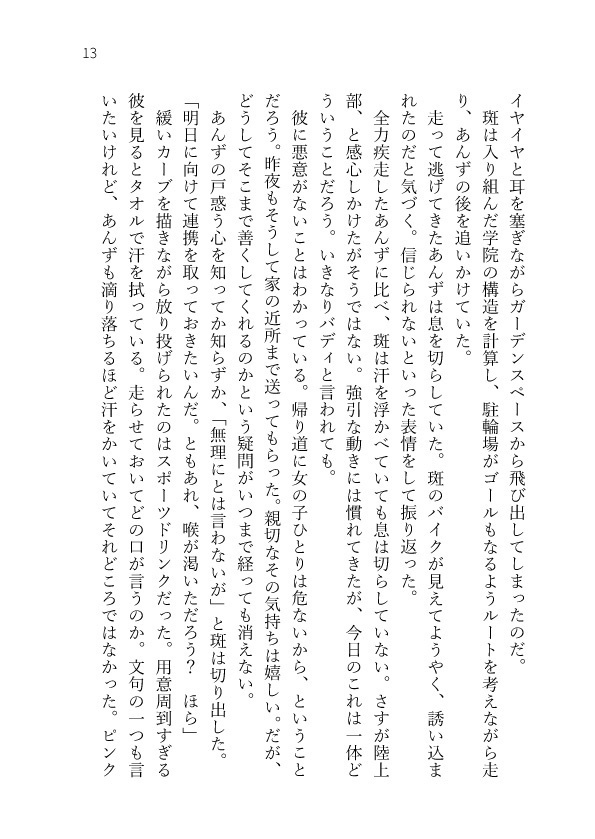 13
イヤイヤと耳を塞ぎながらガーデンスペースから飛び出してしまったのだ。
斑は入り組んだ学院の構造を計算し、駐輪場がゴールもなるようルートを考えながら走
り、あんずの後を追いかけていた。
走って逃げてきたあんずは息を切らしていた。斑のバイクが見えてようやく、誘い込ま
れたのだと気づく。信じられないといった表情をして振り返った。
全力疾走したあんずに比べ、斑は汗を浮かべていても息は切らしていない。さすが陸上
部、と感心しかけたがそうではない。強引な動きには慣れてきたが、今日のこれは一体ど
ういうことだろう。いきなりバディと言われても。
彼に悪意がないことはわかっている。帰り道に女の子ひとりは危ないから、ということ
だろう。昨夜もそうして家の近所まで送ってもらった。親切なその気持ちは嬉しい。だが、
どうしてそこまで善くしてくれるのかという疑問がいつまで経っても消えない。
あんずの戸惑う心を知ってか知らずか、「無理にとは言わないが」と斑は切り出した。
「明日に向けて連携を取っておきたいんだ。ともあれ、喉が渇いただろう？　ほら」
緩いカーブを描きながら放り投げられたのはスポーツドリンクだった。用意周到すぎる
彼を見るとタオルで汗を拭っている。走らせておいてどの口が言うのか。文句の一つも言
いたいけれど、あんずも滴り落ちるほど汗をかいていてそれどころではなかった。ピンク